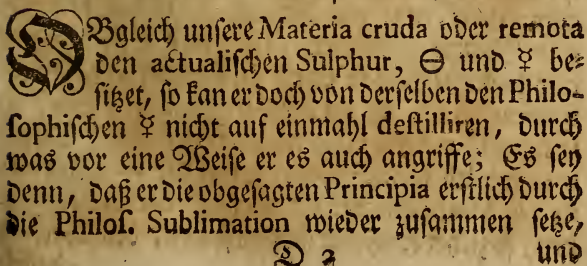 OBgleich unſere Materia cruda oder remota
den actualiſchen Sulphur, 🜔 und ☿ be⸗
ſitzet, ſo kan er doch von derſelben den Philo⸗
ſophiſchen ☿ nicht auf einmahl deſtilliren, durch
was vor eine Weiſe er es auch angriffe; Es ſey
denn, daß er die obgeſagten Principia erſtlich durch
die Philoſ. Sublimation wieder zuſammen ſetze,
D 2
und